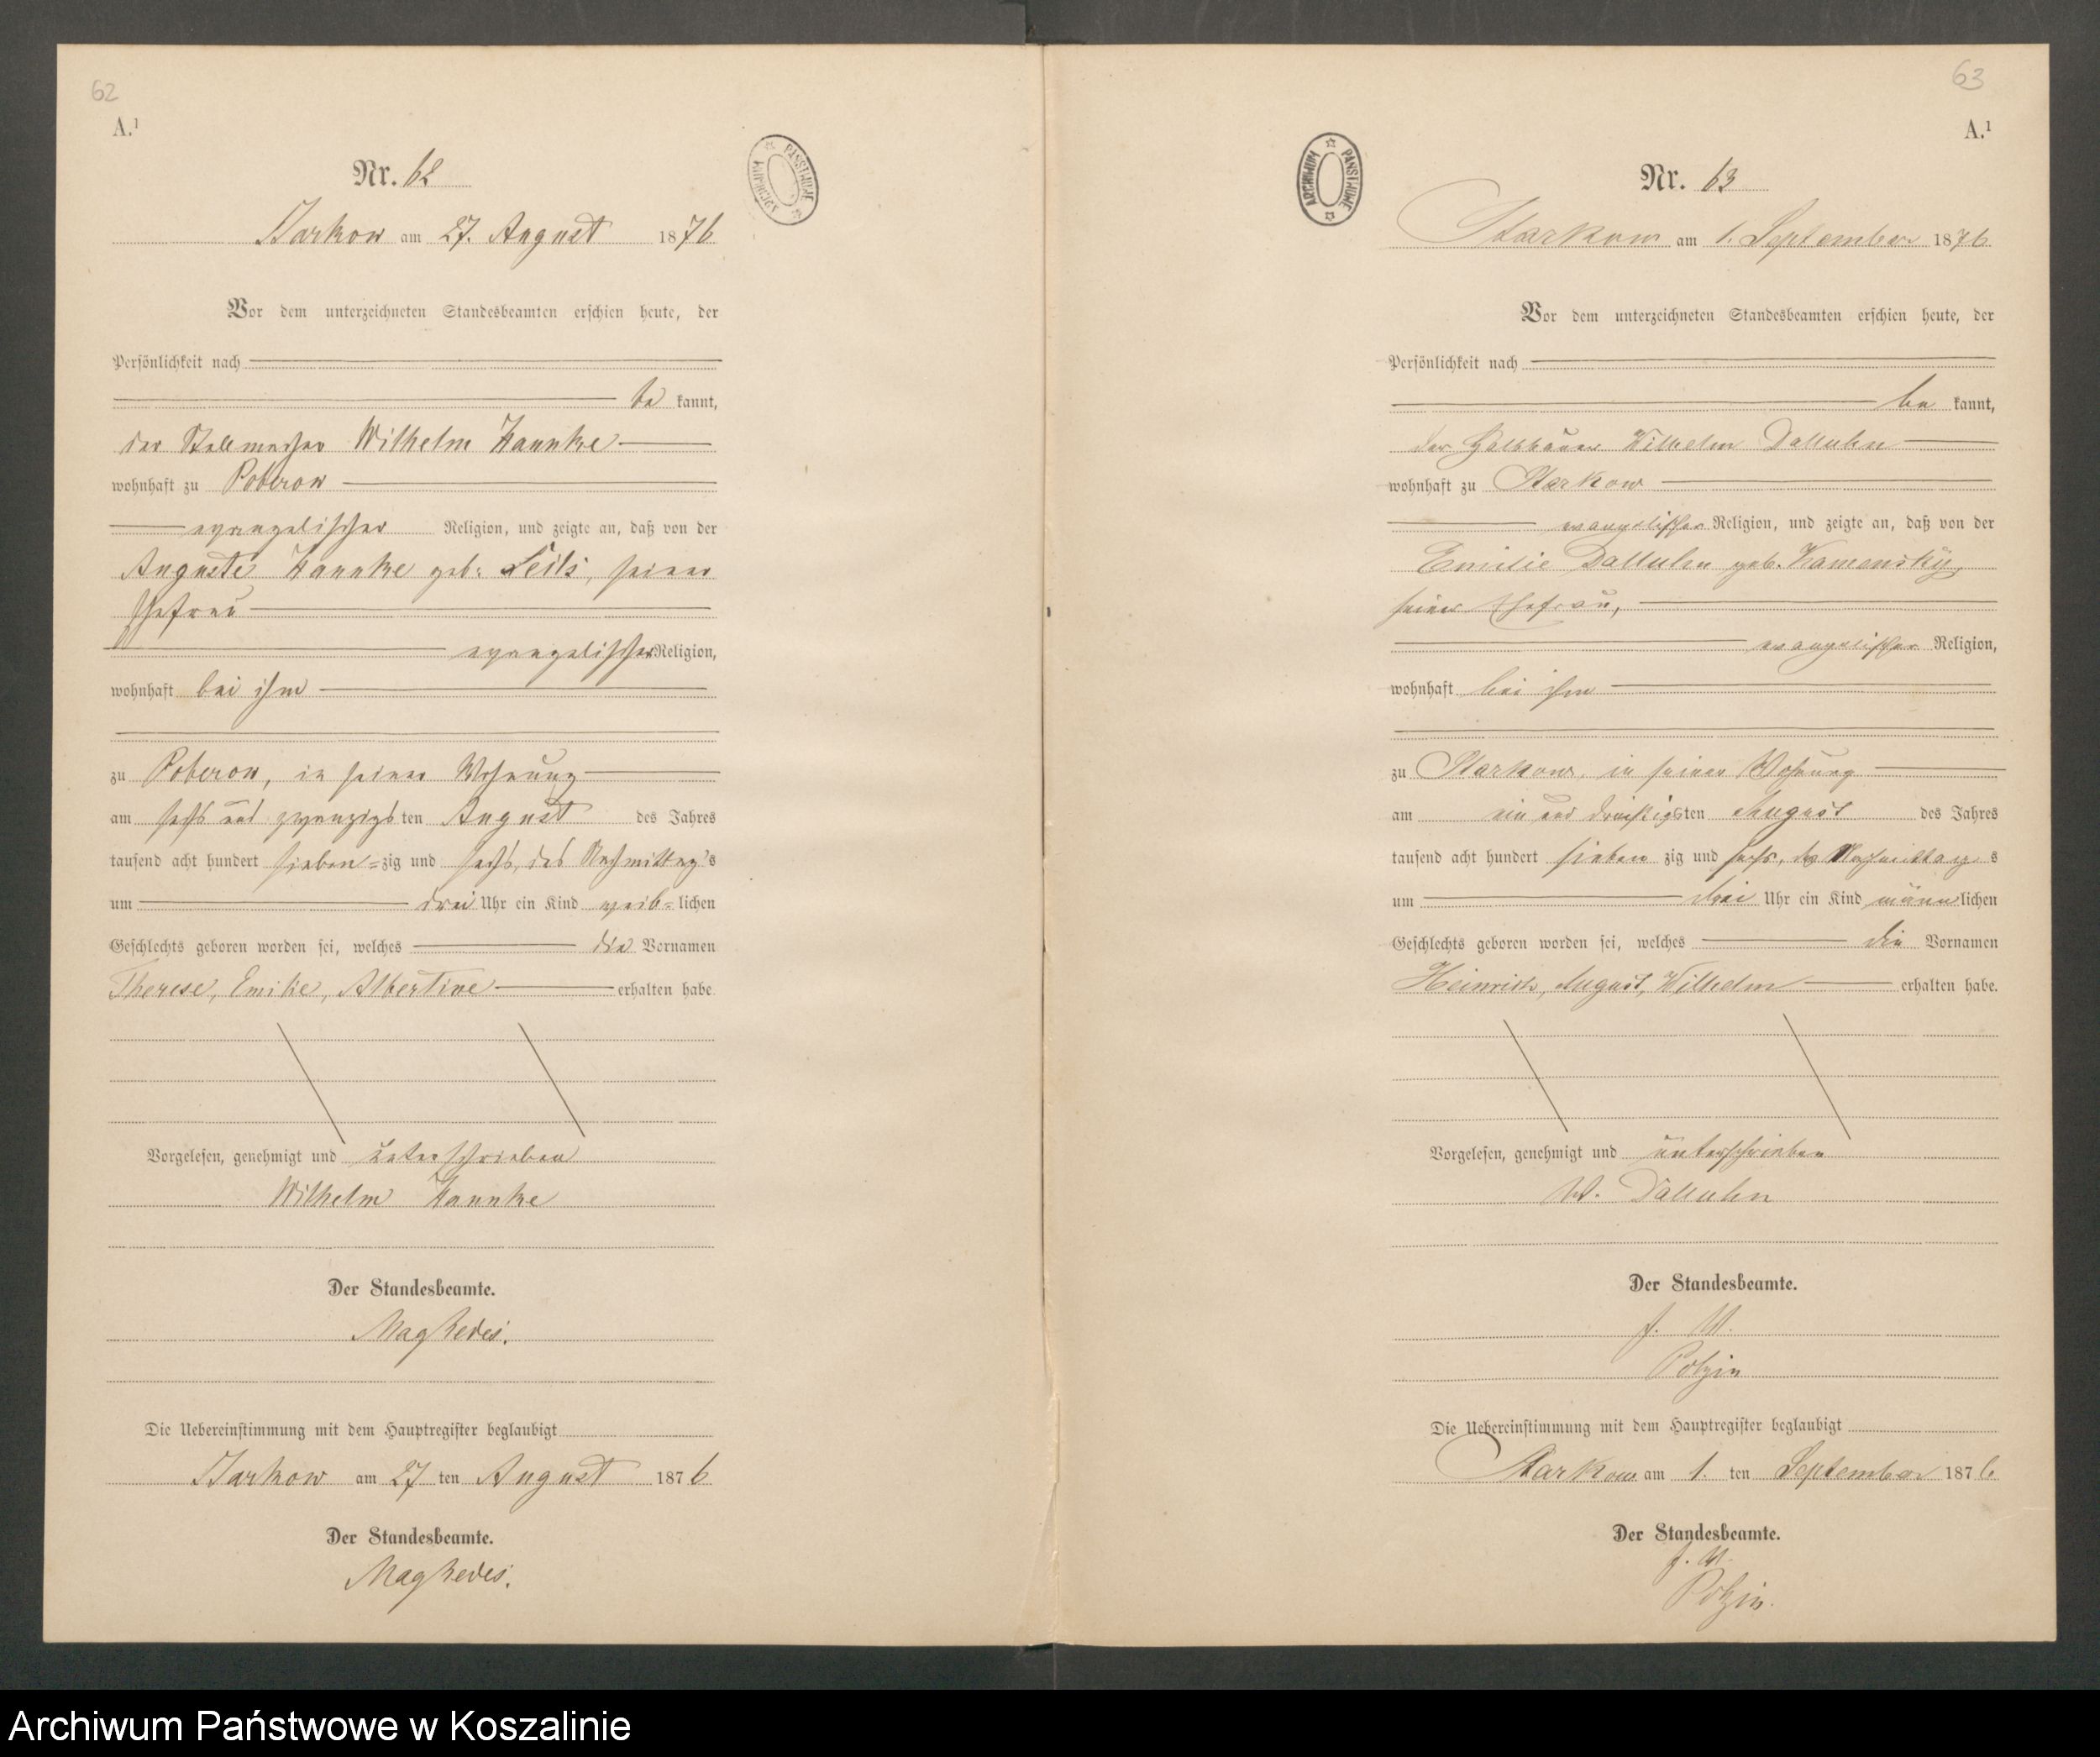 62
A.¹
ARCHIWUM PAŃSTWOWE
Nr. 62
Starkow am 27. August 1876
Vor dem unterzeichneten Standesbeamten erschien heute, der
Persönlichkeit nach
be kannt,
der Stellmacher Wilhelm Kannke
wohnhaft zu Poberow
evangelischer Religion, und zeigte an, daß von der
Auguste Kannke geb: Leils, seiner
Ehefrau
evangelischer Religion,
wohnhaft bei ihm
zu Poberow, in seiner Wohnung
am sechs und zwanzigsten August des Jahres
tausend acht hundert sieben=zig und sechs, des Nachmittag's
um drei Uhr ein Kind weib=lichen
Geschlechts geboren worden sei, welches die Vornamen
Therese, Emilie, Albertine erhalten habe
Vorgelesen, genehmigt und unterschrieben
Wilhelm Kannke
Der Standesbeamte.
Die Uebereinstimmung mit dem Hauptregister beglaubigt
Starkow am 27 ten August 1876
Der Standesbeamte.
63
A.¹
ARCHIWUM PAŃSTWOWE
Nr. 63
Starkow am 1. September 1876
Vor dem unterzeichneten Standesbeamten erschien heute, der
Persönlichkeit nach
be kannt,
der Halbbauer Wilhelm Dalluhn
wohnhaft zu Starkow
evangelischer Religion, und zeigte an, daß von der
Emilie Dalluhn geb. Kamensky,
seiner Ehefrau,
evangelischer Religion,
wohnhaft bei ihm
zu Starkow, in seiner Wohnung
am ein und dreißigsten August des Jahres
tausend acht hundert sieben zig und sechs, des Nachmittag s
um drei Uhr ein Kind männlichen
Geschlechts geboren worden sei, welches die Vornamen
Heinrich, August, Wilhelm erhalten habe.
Vorgelesen, genehmigt und unterschrieben
W. Dalluhn
Der Standesbeamte.
Polzin
Die Uebereinstimmung mit dem Hauptregister beglaubigt
Starkow am 1. ten September 1876
Der Standesbeamte.
Polzin.
Archiwum Państwowe w Koszalinie